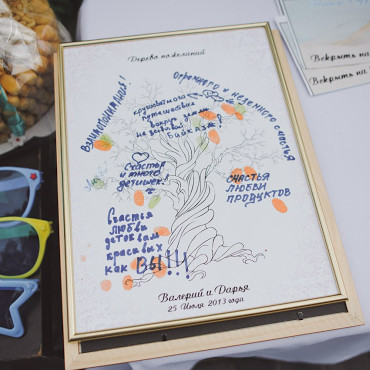 Дерево пожеланий
Взаимопонимания!
Огромного и неземного счастья
кругосветного
путешествия
вокруг земли
не забывай
Байкал!
Счастья
и много
детишек!
СЧАСТЬЯ
ЛЮБВИ
ПРОДУКТОВ
Счастья
Любви
деток вам
красивых
как ВЫ!!!
Валерий и Дарья
25 Июля 2013 года
Вскрыть на
Вскрыть на